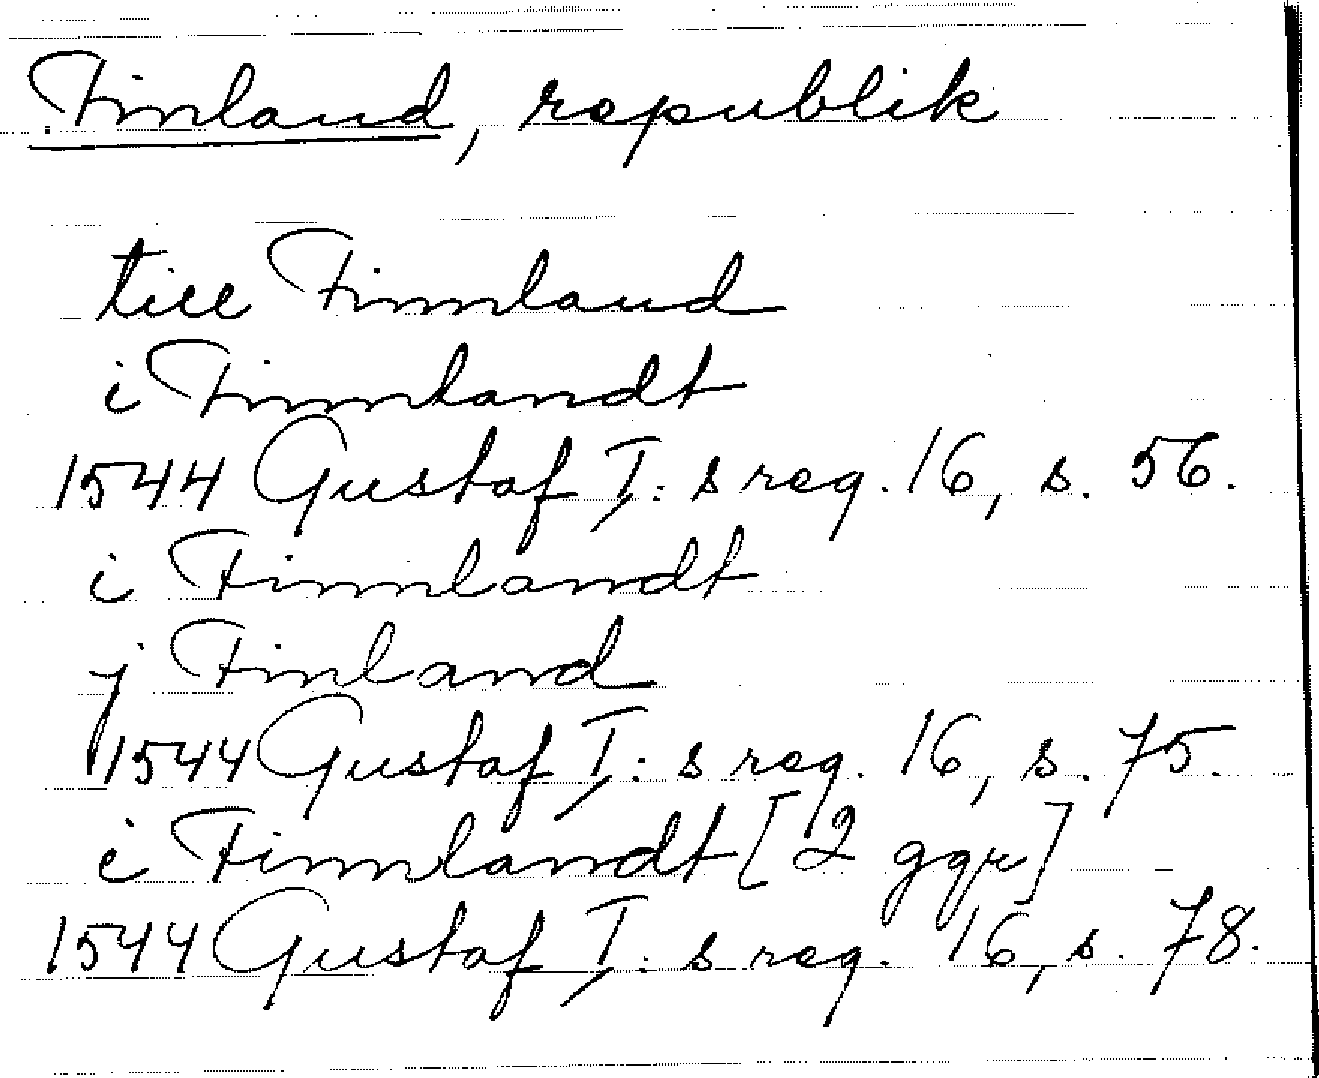 Finland, republik
till Finnland
i Finnlandt
1544 Gustaf I: s reg. 16, s. 56.
i Finnlandt
j Finland
1544 Gustaf I: s reg. 16, s. 75.
i Finnlandt [2 ggr]
1544 Gustaf I: s reg. 16, s. 78.